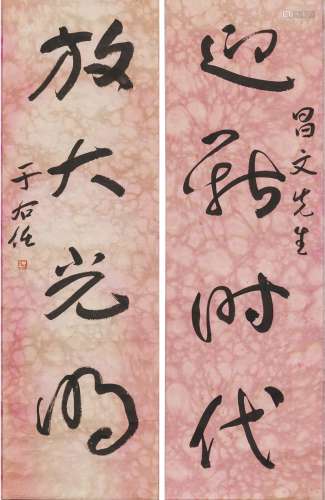 昌文先生
迎新时代
放大光明
于右任